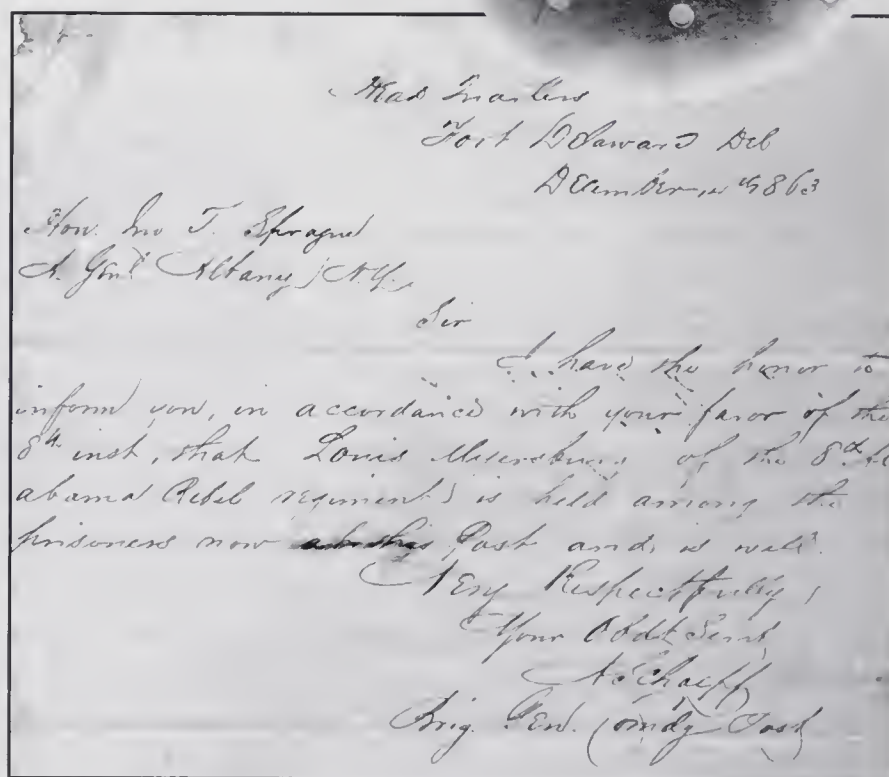 Head Quarters
Fort Delaware Del
December 1863
Hon. Jno T. Sprague
A. Genl Albany, N.Y.
Sir
I have the honor to
inform you, in accordance with your favor of the
8th inst, that Louis of the 8th Al
abama Rebel regiment, is held among the
prisoners now at this Post and, is well.
Very Respectfully,
Your Obdt Servt
A Schoepf
Brig. Gen. Comdg Post